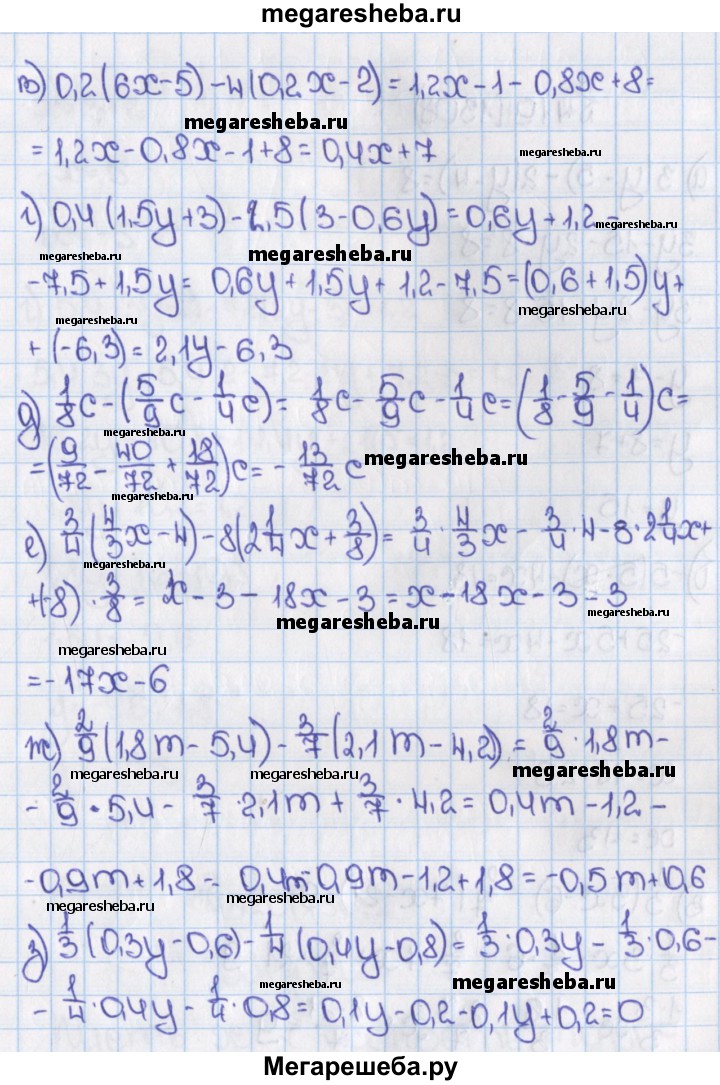 megaresheba.ru
в) 0,2(6x-5)-4(0,2x-2)=1,2x-1-0,8x+8=
megaresheba.ru
=1,2x-0,8x-1+8=0,4x+7
megaresheba.ru
г) 0,4(1,5y+3)-2,5(3-0,6y)=0,6y+1,2-
megaresheba.ru megaresheba.ru megaresheba.ru
-7,5+1,5y= 0,6y+1,5y+1,2-7,5=(0,6+1,5)y+
megaresheba.ru megaresheba.ru
+(-6,3)=2,1y-6,3
д) 1/8c-(5/9c-1/4c)= 1/8c-5/9c-1/4c=(1/8-5/9-1/4)c=
megaresheba.ru
=(9/72-40/72+18/72)c=-13/72c
megaresheba.ru
megaresheba.ru
е) 3/4(4/3x-4)-8(2 1/4x+3/8)= 3/4·4/3x-3/4·4-8·2 1/4x+
megaresheba.ru
+(-8)·3/8= x-3-18x-3=x-18x-3-3
megaresheba.ru megaresheba.ru
megaresheba.ru
=-17x-6
ж) 2/9(1,8m-5,4)-3/7(2,1m-4,2)=2/9·1,8m-
megaresheba.ru megaresheba.ru megaresheba.ru
-2/9·5,4-3/7·2,1m+3/7·4,2=0,4m-1,2-
-0,9m+1,8= 0,4m-0,9m-1,2+1,8=-0,5m+0,6
megaresheba.ru megaresheba.ru
з) 1/3(0,3y-0,6)-1/4(0,4y-0,8)=1/3·0,3y-1/3·0,6-
megaresheba.ru megaresheba.ru
-1/4·0,4y-1/4·0,8=0,1y-0,2-0,1y+0,2=0
Мегарешеба.ру